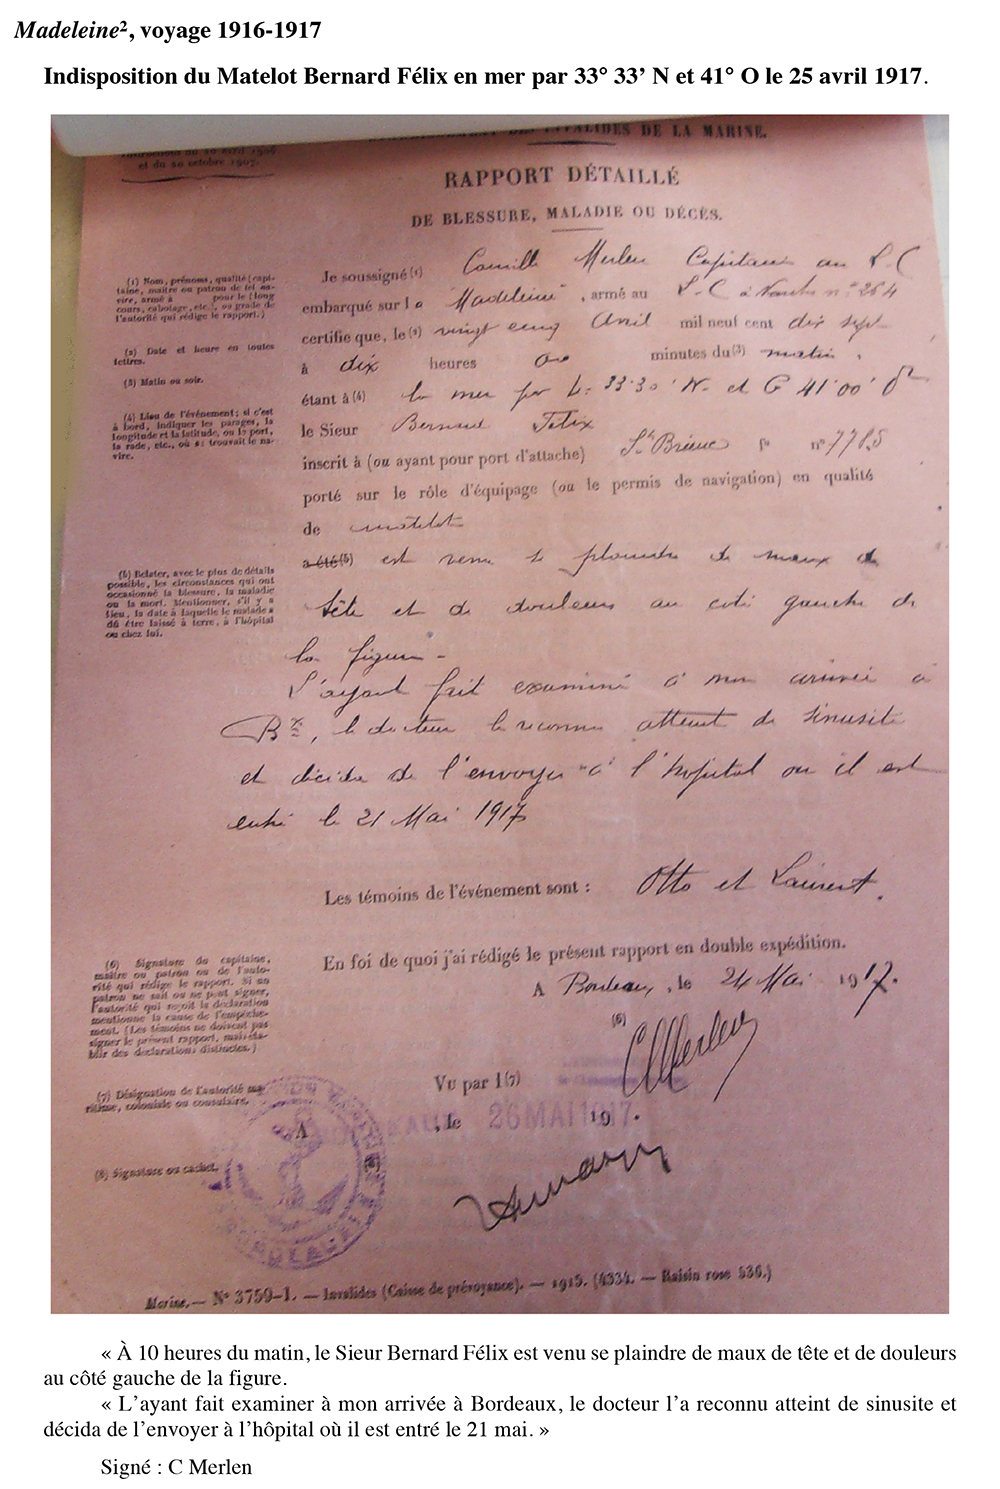 Madeleine², voyage 1916-1917
Indisposition du Matelot Bernard Félix en mer par 33° 33’ N et 41° O le 25 avril 1917.
DES INVALIDES DE LA MARINE.
et du 20 octobre 1907.
RAPPORT DÉTAILLÉ
DE BLESSURE, MALADIE OU DÉCÈS.
(1) Nom, prénoms, qualité (capi-
taine, maître ou patron de tel na-
vire, armé à pour le (long
cours, cabotage, etc.), ou grade de
l'autorité qui rédige le rapport.)
(2) Date et heure en toutes
lettres.
(3) Matin ou soir.
(4) Lieu de l'événement; si c'est
à bord, indiquer les parages, la
longitude et la latitude, ou le port,
la rade, etc., où se trouvait le na-
vire.
Je soussigné (1) Camille Merlen Capitaine au L-C
embarqué sur l a Madeleine, armé au L-C à Nantes n° 264
certifie que, le (2) vingt cinq Avril mil neuf cent dix sept
à dix heures 00 minutes du (3) matin,
étant à (4) la mer par L= 33·30' N. et G 41°00' O
le Sieur Bernard Félix
inscrit à (ou ayant pour port d'attache) St Brieuc n° 7785
porté sur le rôle d'équipage (ou le permis de navigation) en qualité
de matelot
(5) Relater, avec le plus de détails
possible, les circonstances qui ont
occasionné la blessure, la maladie
ou la mort. Mentionner, s'il y a
lieu, la date à laquelle le malade a
dû être laissé à terre, à l'hôpital
ou chez lui.
a été (5) est venu se plaindre de maux de
tête et de douleurs au coté gauche de
la figure -
L'ayant fait examiné à mon arrivée à
Bx, le docteur le reconnu atteint de sinusite
et décida de l'envoyer à l'hôpital ou il est
entré le 21 Mai 1917
Les témoins de l'événement sont : Otto et Laurent.
En foi de quoi j'ai rédigé le présent rapport en double expédition.
A Bordeaux, le 24 Mai 1917.
(6) Signature du capitaine,
maître ou patron ou de l'auto-
rité qui rédige le rapport. Si un
patron ne sait ou ne peut signer,
l'autorité qui reçoit la déclaration
mentionne la cause de l'empêche-
ment. (Les témoins ne doivent pas
signer le présent rapport, mais éta-
blir des déclarations distinctes.)
(6)
CMerlen
(7) Désignation de l'autorité ma-
ritime, coloniale ou consulaire.
Vu par l (7)
A BORDEAUX, le 26 MAI 1917 19 .
(8) Signature ou cachet.
(8)
Marine. — N° 3759-1. — Invalides (Caisse de prévoyance). — 1915. (4334. — Raisin rose 536.)
« À 10 heures du matin, le Sieur Bernard Félix est venu se plaindre de maux de tête et de douleurs
au côté gauche de la figure.
« L’ayant fait examiner à mon arrivée à Bordeaux, le docteur l’a reconnu atteint de sinusite et
décida de l’envoyer à l’hôpital où il est entré le 21 mai. »
Signé : C Merlen